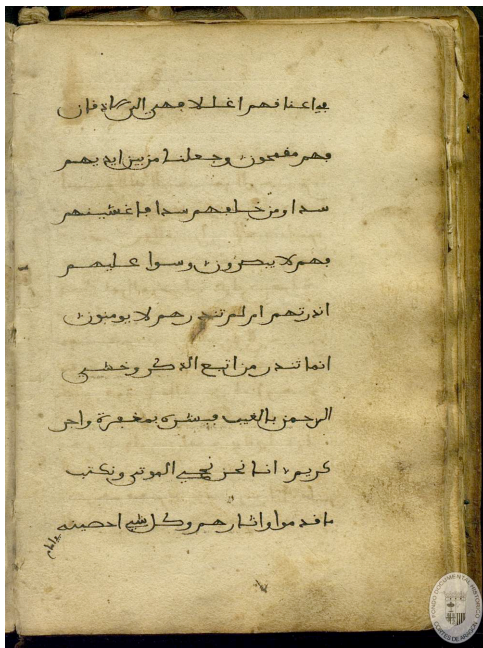 في اعنافهم اغللا فهي الى الاذفان
فهم مفمحون وجعلنا من بين ايديهم
سدا ومن خلفهم سدا فاغشينهم
فهم لا يبصرون وسوا عليهم
انذرتهم ام لم تنذرهم لا يومنون
انما تنذر من اتبع الذكر وخشي
الرحمن بالغيب فبشره بمغفرة واجر
كريم انا نحن نحيي الموتى ونكتب
ما فدموا واثارهم وكل شيء احصينه
في امام
FONDO DOCUMENTAL HISTÓRICO
CORTES DE ARAGÓN